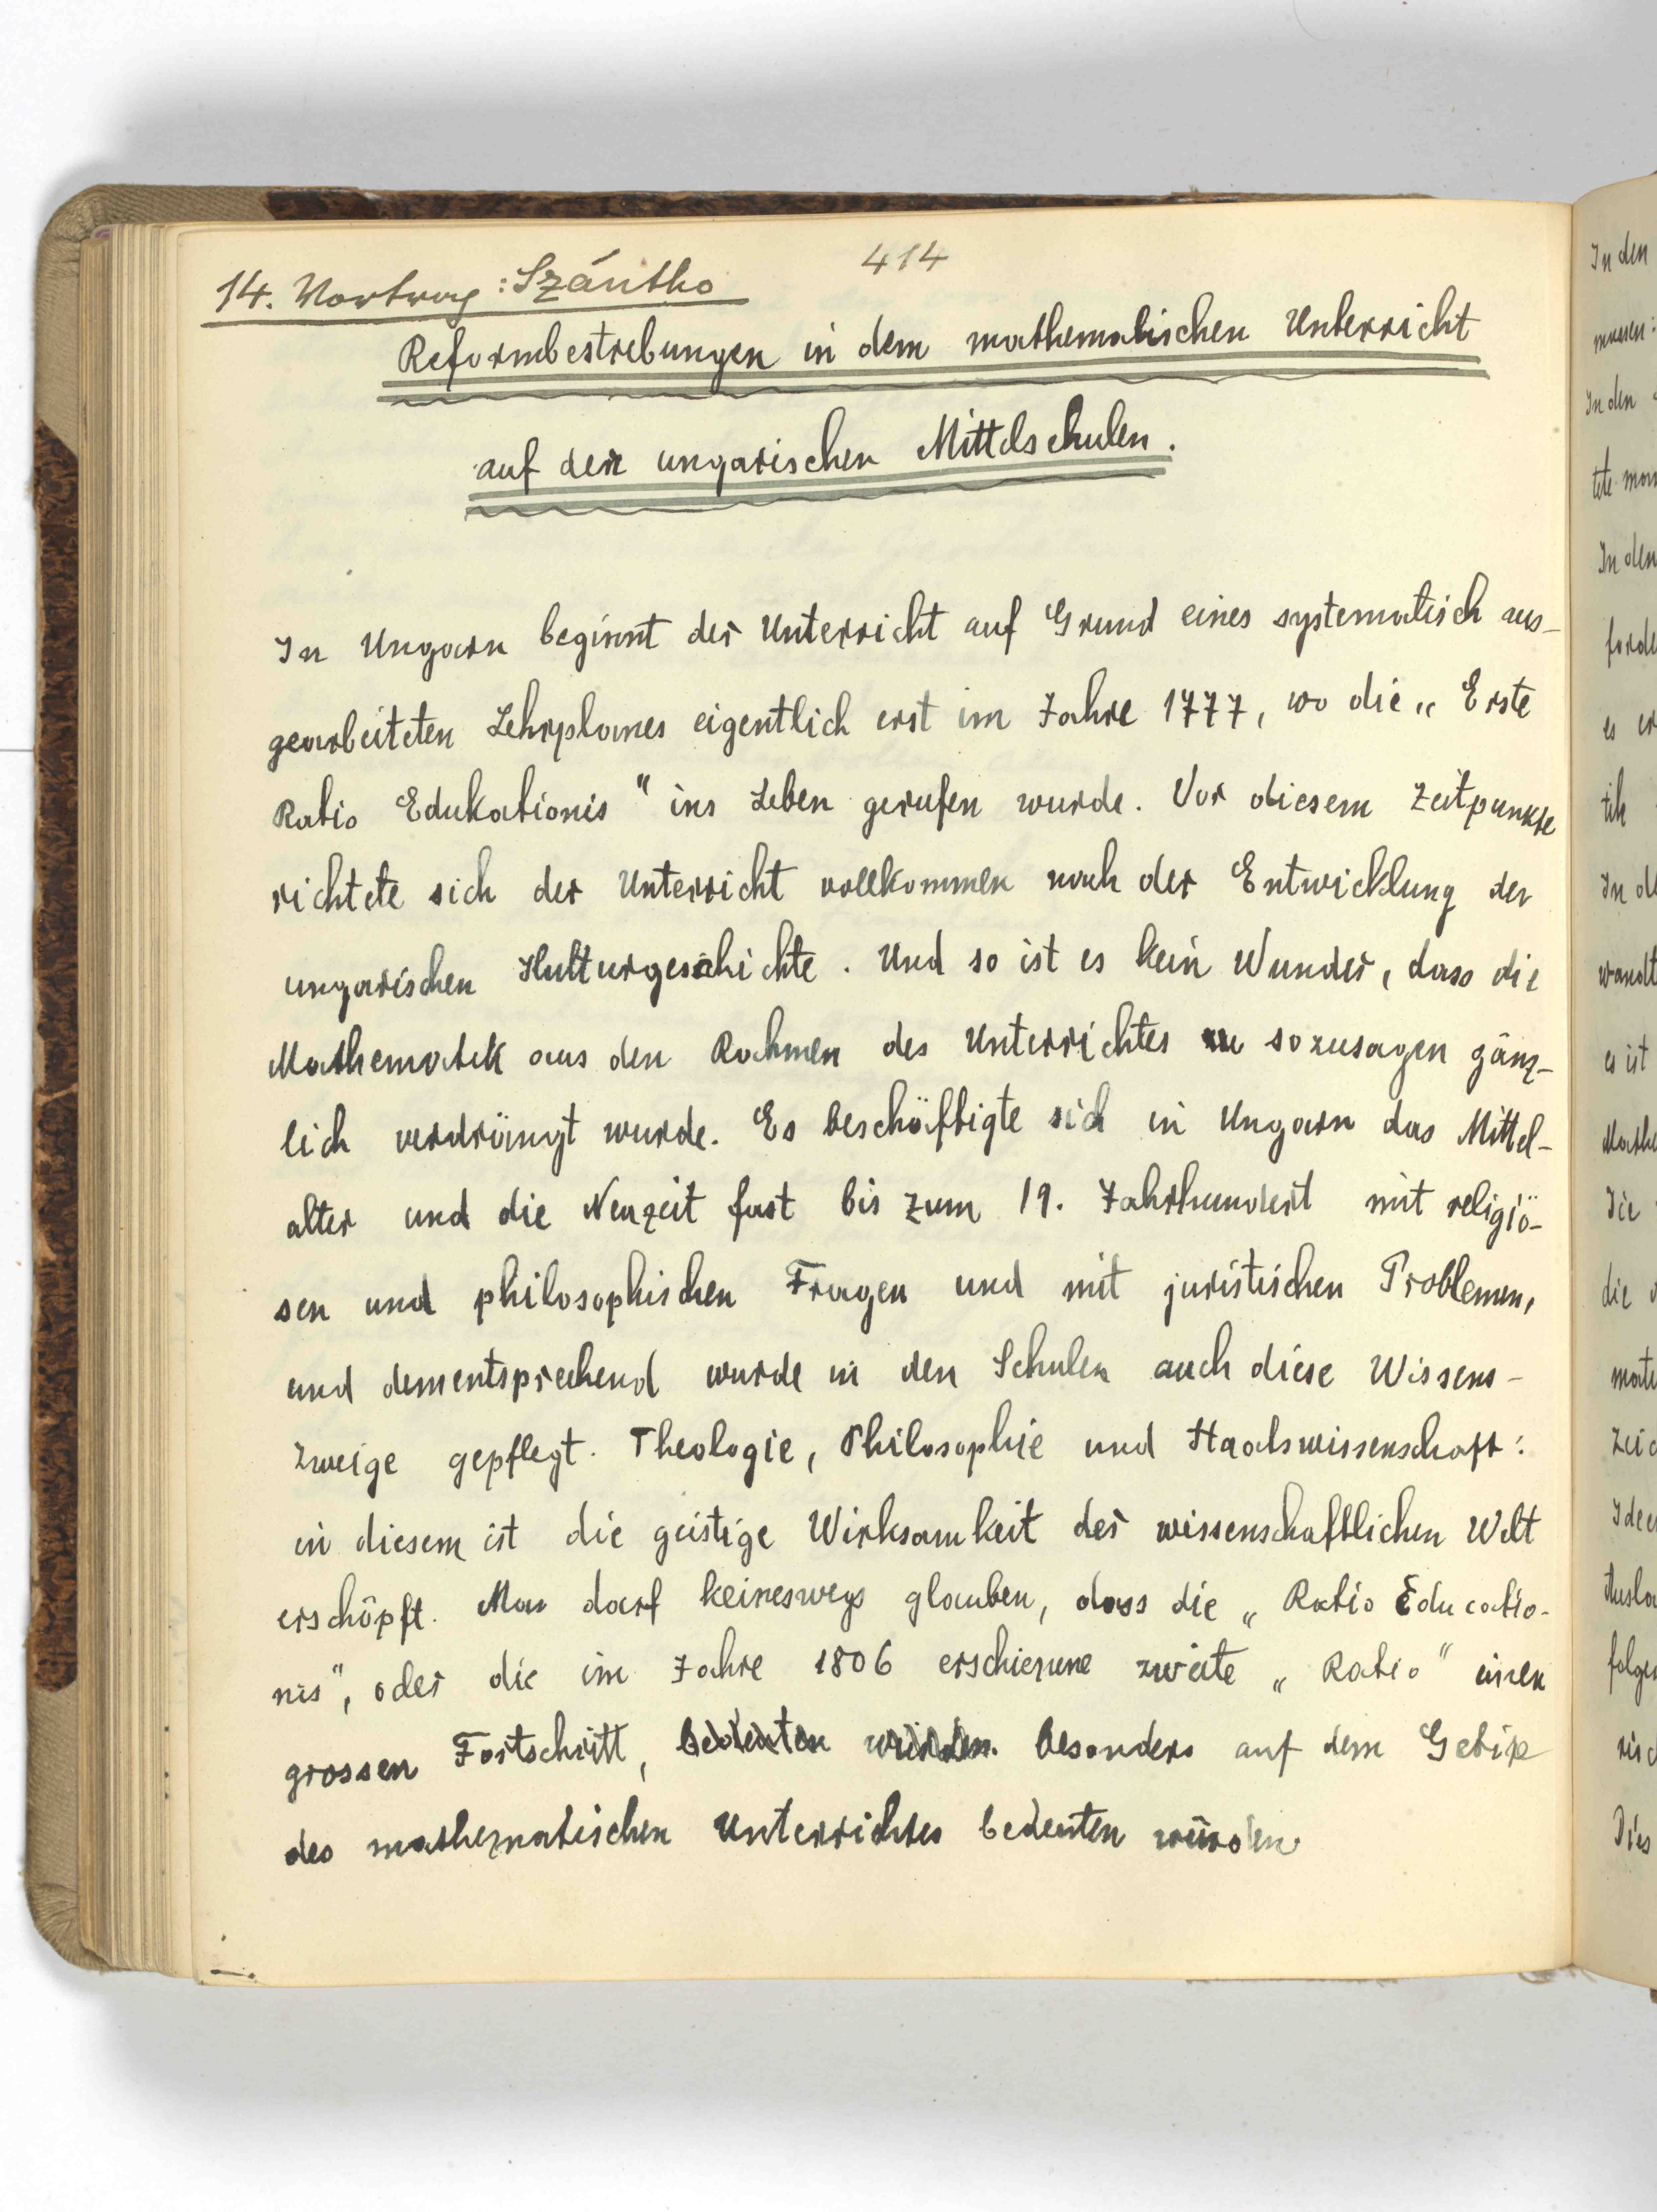 414
14. Vortrag: Szántho
Reformbestrebungen in dem mathematischen Unterricht
auf den ungarischen Mittelschulen.
In Ungarn beginnt der Unterricht auf Grund eines systematisch aus-
gearbeiteten Lehrplanes eigentlich erst im Jahre 1777, wo die „Erste
Ratio Edukationis" ins Leben gerufen wurde. Vor diesem Zeitpunkte
richtete sich der Unterricht vollkommen nach der Entwicklung der
ungarischen Kulturgeschichte. Und so ist es kein Wunder, dass die
Mathematik aus den Rahmen des Unterrichtes sozusagen gänz-
lich verdrängt wurde. Es beschäftigte sich in Ungarn das Mittel-
alter und die Neuzeit fast bis zum 19. Jahrhundert mit religiö-
sen und philosophischen Fragen und mit juristischen Problemen,
und dementsprechend wurde in den Schulen auch diese Wissens-
zweige gepflegt. Theologie, Philosophie und Staatswissenschaft:
in diesem ist die geistige Wirksamkeit der wissenschaftlichen Welt
erschöpft. Man darf keineswegs glauben, dass die „Ratio Educatio-
nis", oder die im Jahre 1806 erschienene zweite „Ratio" einen
grossen Fortschritt, bedeuten würden. besonders auf dem Gebite
des mathematischen Unterrichtes bedeuten würden
In den
In den
tete man
In den
es er
tik
In de
wandt
es ist
Mathe
die
mate
Zeic
Idee
Ausla
folge
risc
Dies